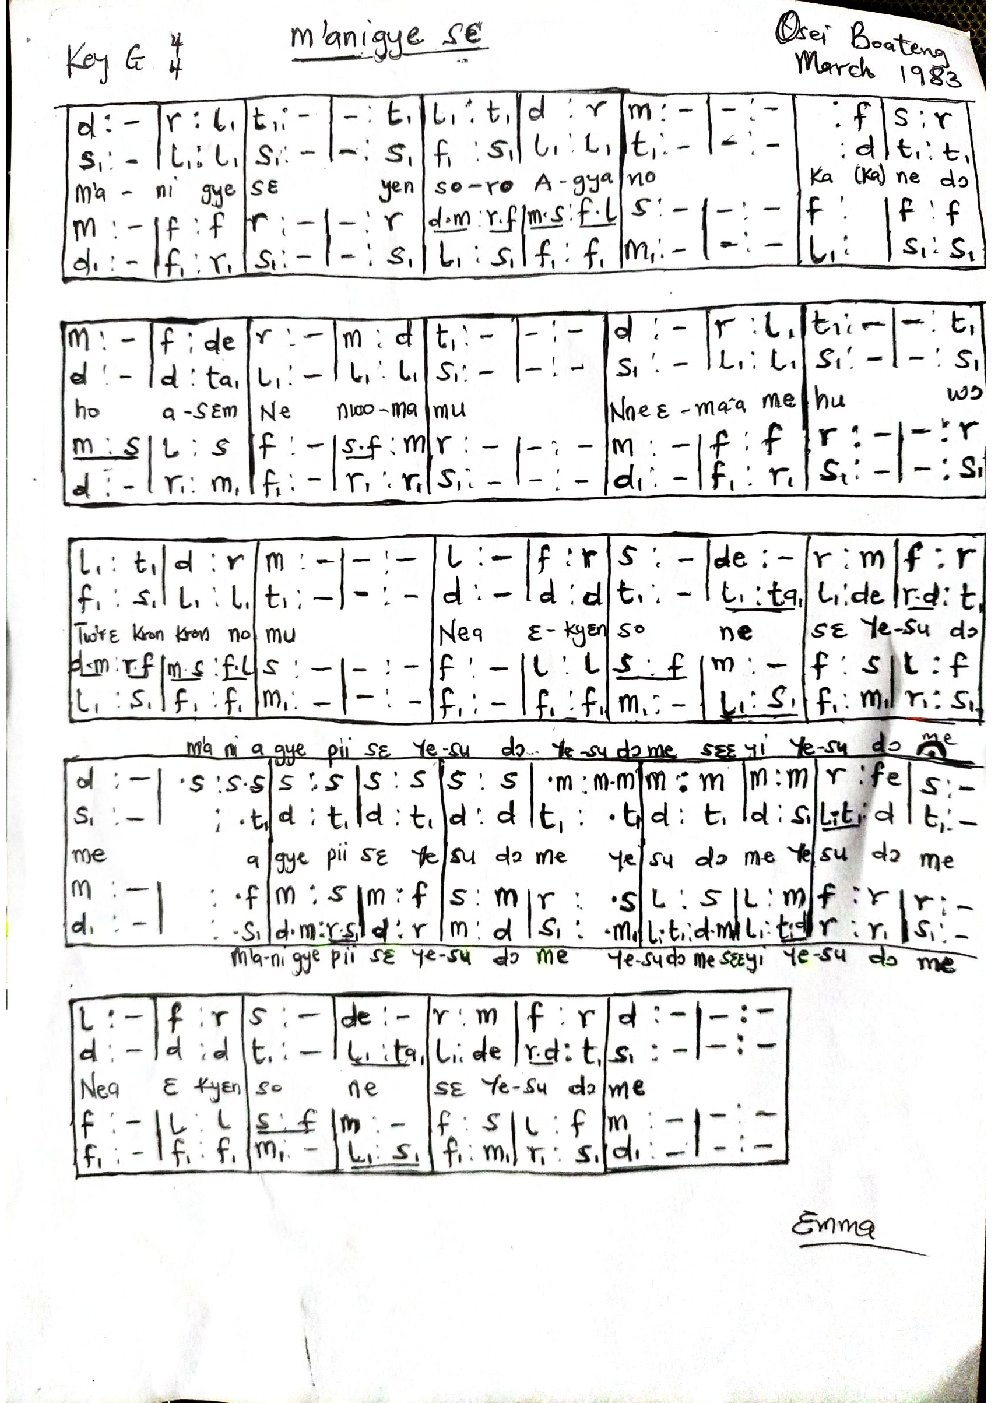 Key G 4/4
m'anigye sɛ
Osei Boateng
March 1983
d : - | r : l, | t, : - | - : t, | l, : t, | d : r | m : - | - : - | : f | s : r
s, : - | l, : l, | s, : - | - : s, | f, : s, | l, : l, | t, : - | - : - | : d | t, : t,
m'a - ni gye sɛ yen so-ro A-gya no Ka (Ka) ne dɔ
m : - | f : f | r : - | - : r | d.m : r.f | m.s : f.l | s : - | - : - | f : | f : f
d, : - | f, : r, | s, : - | - : s, | l, : s, | f, : f, | m, : - | - : - | l, : | s, : s,
m : - | f : de | r : - | m : d | t, : - | - : - | d : - | r : l, | t, : - | - : t,
d : - | d : ta, | l, : - | l, : l, | s, : - | - : - | s, : - | l, : l, | s, : - | - : s,
ho a-sɛm Ne nwo-ma mu Nne ɛ-ma'a me hu wɔ
m : s | l : s | f : - | s.f : m | r : - | - : - | m : - | f : f | r : - | - : r
d : - | r, : m, | f, : - | r, : r, | s, : - | - : - | d, : - | f, : r, | s, : - | - : s,
l, : t, | d : r | m : - | - : - | l : - | f : r | s : - | de : - | r : m | f : r
f, : s, | l, : l, | t, : - | - : - | d : - | d : d | t, : - | l, : ta, | l, : de | r.d : t,
Twrɛ kron kron no mu Nea ɛ-kyɛn so ne sɛ Ye-su dɔ
d.m : r.f | m.s : f.l | s : - | - : - | f : - | l : l | s : f | m : - | f : s | l : f
l, : s, | f, : f, | m, : - | - : - | f, : - | f, : f, | m, : - | l, : s, | f, : m, | r, : s,
m'a ni a gye pii sɛ Ye-su dɔ.. Ye-su dɔ me sɛɛ yi Ye-su dɔ me
d : - | .s : s.s | s : s | s : s | s : s | .m : m.m | m : m | m : m | r : fe | s : -
s, : - | : .t, | d : t, | d : t, | d : d | t, : .t, | d : t, | d : s, | l,t, : d | t, : -
me a gye pii sɛ Ye su dɔ me ye su dɔ me Ye su dɔ me
m : - | : .f | m : s | m : f | s : m | r : .s | l : s | l : m | f : r | r : -
d, : - | : .s, | d.m : r.s, | d : r | m : d | s, : .m, | l,.t, : d.m | l, : t,d | r : r, | s, : -
m'a-ni gye pii sɛ Ye-su dɔ me Ye-su dɔ me sɛɛyi Ye-su dɔ me
l : - | f : r | s : - | de : - | r : m | f : r | d : - | - : -
d : - | d : d | t, : - | l, : ta, | l, : de | r.d : t, | s, : - | - : -
Nea ɛ kyɛn so ne sɛ Ye-su dɔ me
f : - | l : l | s : f | m : - | f : s | l : f | m : - | - : -
f, : - | f, : f, | m, : - | l, : s, | f, : m, | r, : s, | d, : - | - : -
Emma